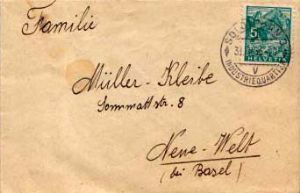 Familie
Müller-Kleibe
Sommattstr. 8
Neue-Welt
(bei Basel)
5
HELVETIA
31.
V
INDUSTRIEQUARTIER